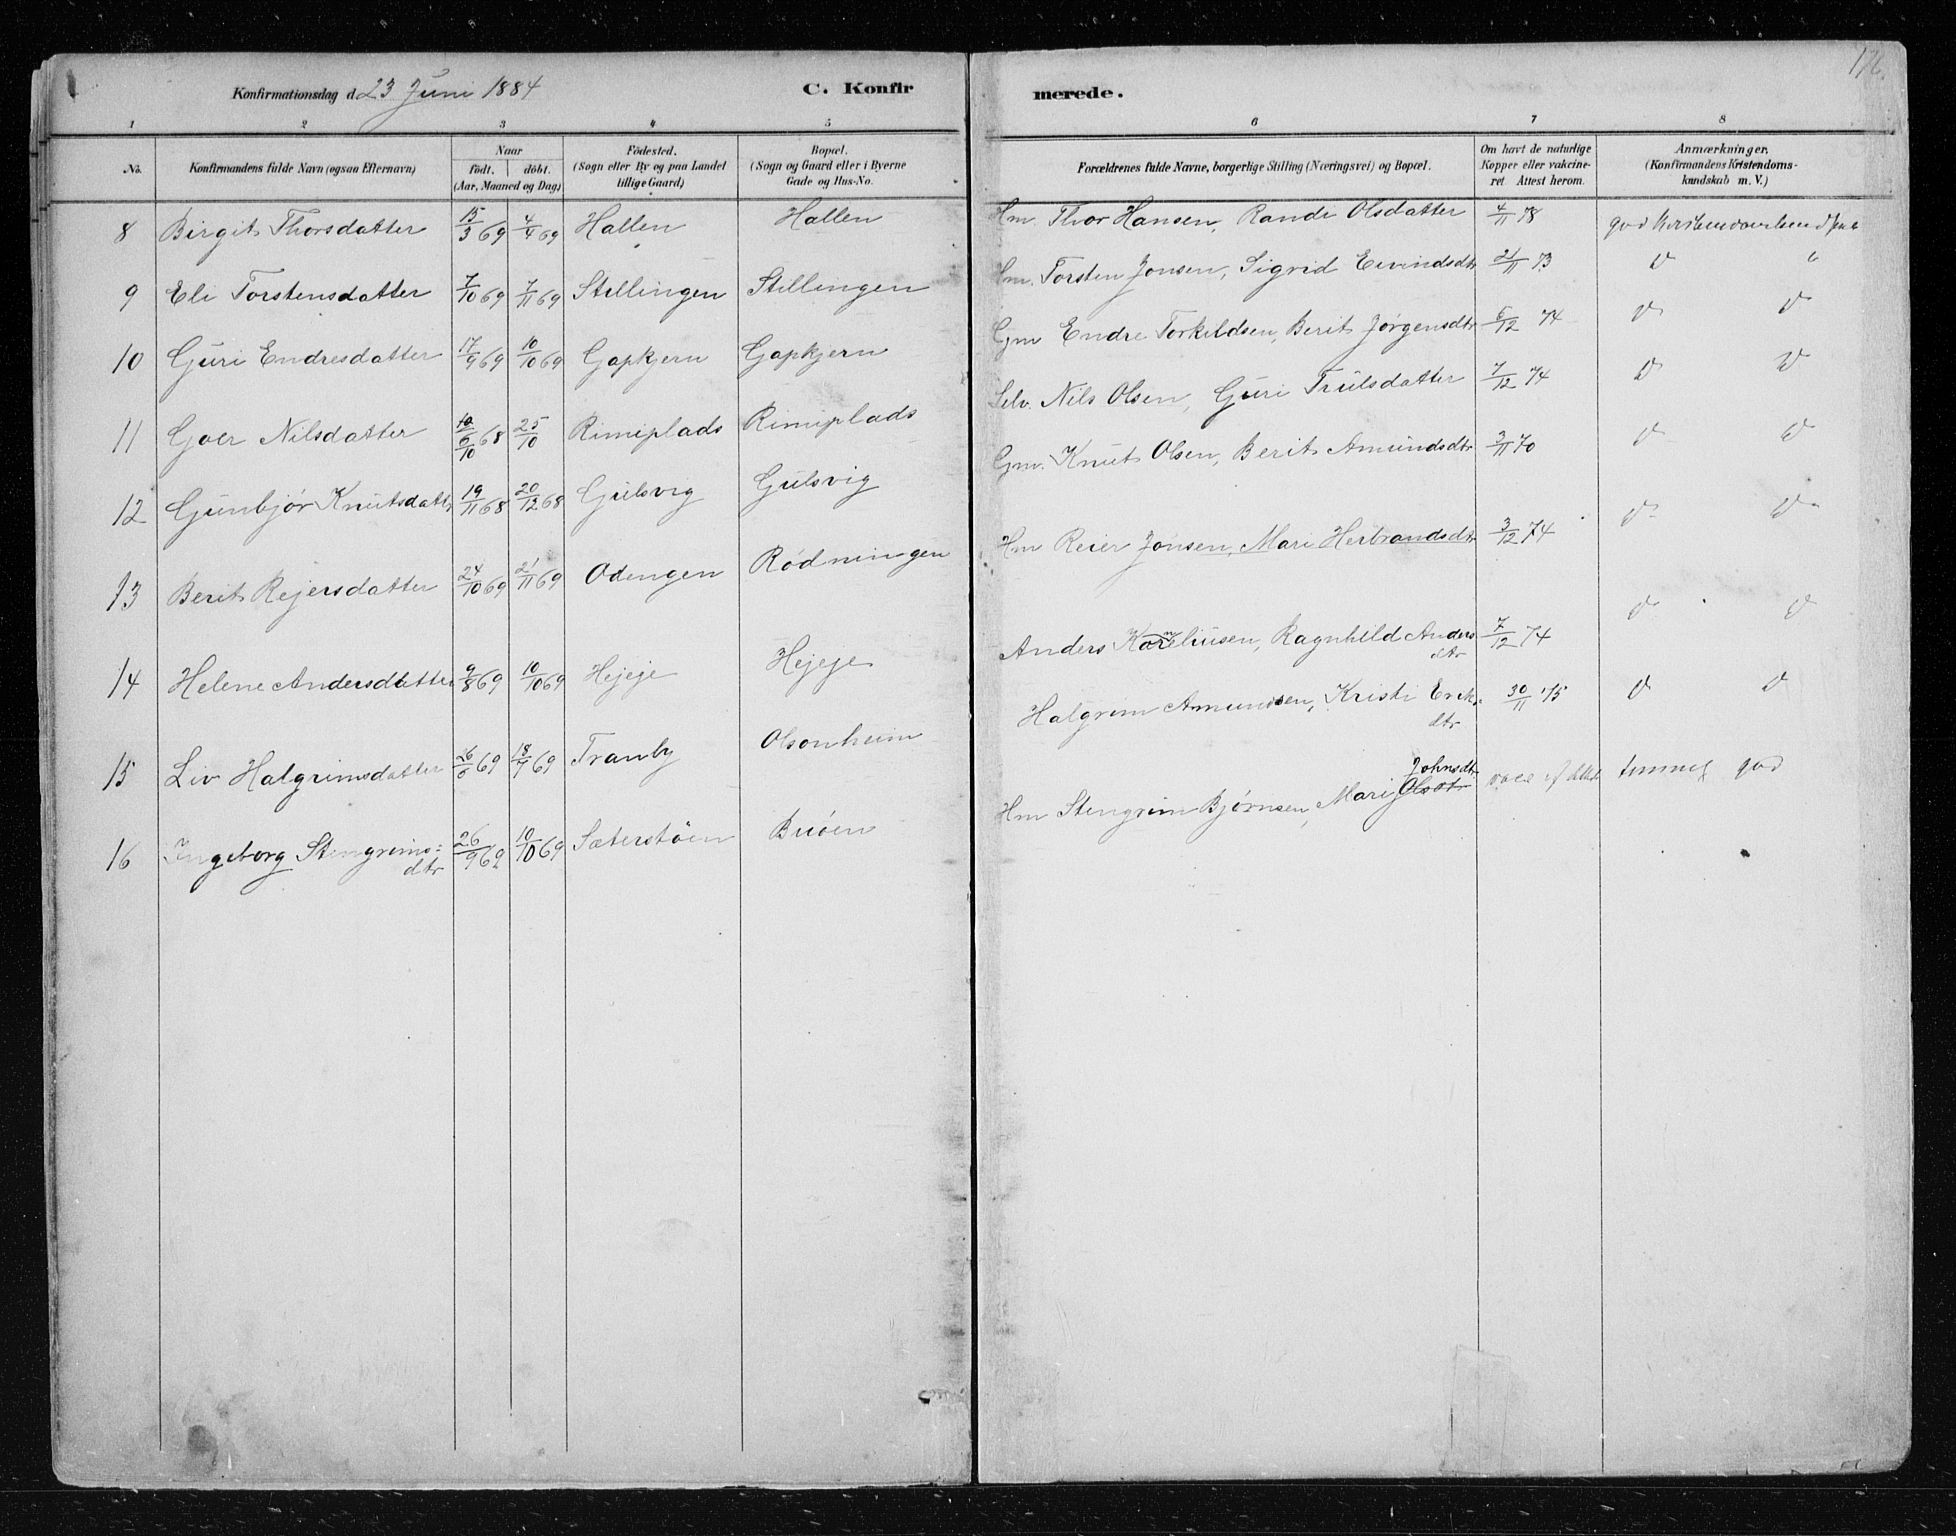 Konfirmationsdag d. 23 Juni 1884
C. Konfirmerede.
1 2 3 4 5 6 7 8
No.
Konfirmandens fulde Navn (ogsaa Efternavn)
Naar
födt. döbt.
(Aar, Maaned og Dag)
Födested.
(Sogn eller By og paa Landet
tillige Gaard)
Bopæl.
(Sogn og Gaard eller i Byerne
Gade og Hus-No.
Forældrenes fulde Navne, borgerlige Stilling (Næringsvei) og Bopæl.
Om havt de naturlige
Kopper eller vakcine-
ret Attest herom.
Anmærkninger,
(Konfirmandens Kristendoms-
kundskab m. V.)
8 Birgit Thorsdatter 15/3 69 4/4 69 Hallen Hallen Hm. Thor Hansen, Randi Olsdatter 4/11 78 god
9 Eli Torstensdatter 7/10 69 7/11 69 Stillingen Stillingen Hm. Torsten Jonsen, Sigrid Eivindsdtr 21/11 73 "
10 Guri Endresdatter 17/9 69 10/10 69 Gapkjern Gapkjern Gm Endre Torkildsen, Berit Jørgensdtr 6/12 74
11 Goer Nilsdatter 10 68 25/10 Rimiplads Rimiplads Selv. Nils Olsen, Guri Trulsdatter 7/12 74
12 Gunbjør Knutsdatt 19/11 68 20/12 68 Gulsvig Gulsvig Gm. Knut Olsen, Berit Amundsdtr 3/11 70
13 Berit Rejersdatter 24/10 69 21/11 69 Odengen Rødningen Hm Reier Jonsen, Mari Herbrandsdtr 3/12 74
14 Helene Andersdatter 9/8 69 10/10 69 Hejeje Hejeje Anders Kareliusen, Ragnhild Anders
dtr 7/12 74
15 Liv Halgrimsdatter 26/5 69 18/7 69 Tranby Olsonheim Halgrim Amundsen, Kristi Erik-
dtr 30/11 75
16 Ingeborg Stengrims-
dtr 26/9 69 10/10 69 Sæterstöen Bröen Hm Stengrim Bjørnsen, Mari Olsdtr Johnsdtr god